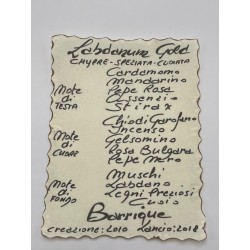 Labdanum Gold
CHYPRE-SPEZIATA-CUOIATA
Cardamomo
Mandarino
Note di TESTA
Pepe Rosa
Assenzio
Stirax
Chiodi Garofano
Note di CUORE
Incenso
Gelsomino
Rosa Bulgara
Pepe Nero
Muschi
Note di FONDO
Labdano
Legni Preziosi
Cuoio
Barrique
Creazione: 2010 Lancio: 2018